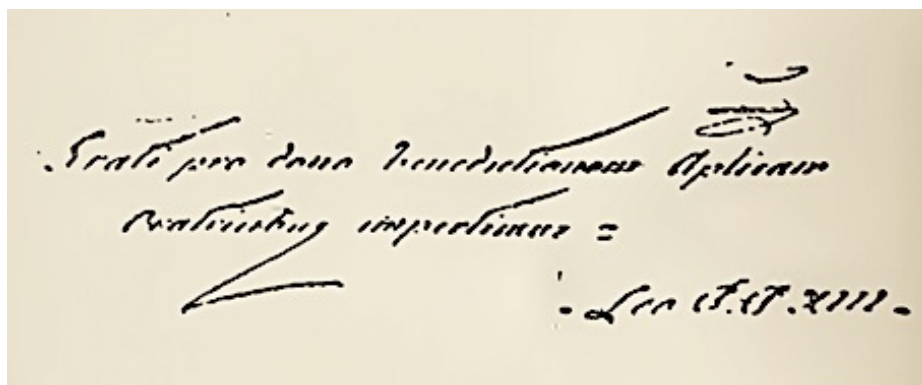 Grati pro dono benedictionem Aplicam
Oratricibus impertimus =
- Leo P.P. XIII -